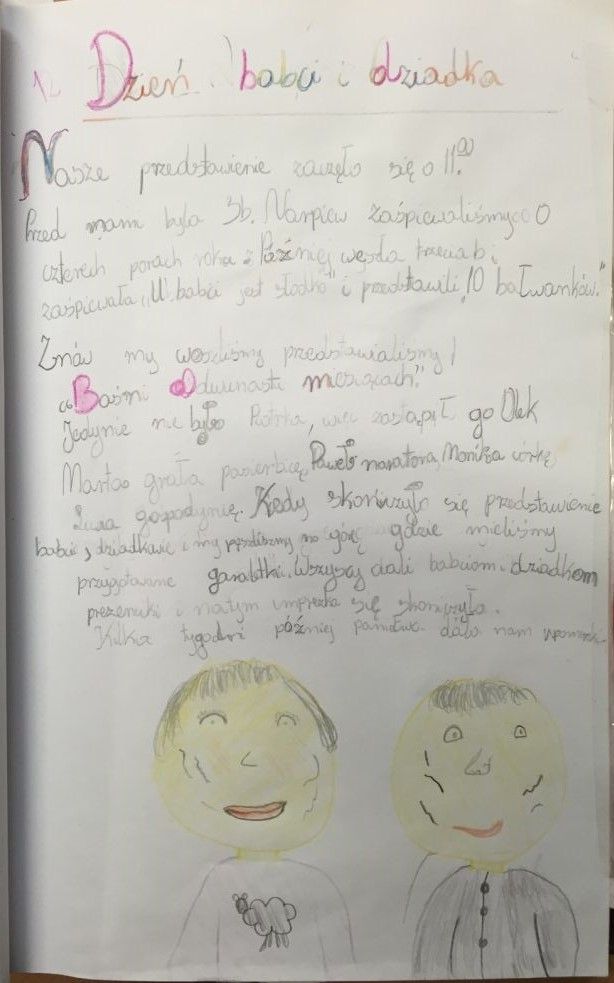 Dzień babci i dziadka
Nasze przedstawienie zaczęło się o 11.00
Przed nami była 3b. Narpierw zaśpiewaliśmy o
czterech porach roku. Później weszła trzecia b i
zaśpiewała „U babci jest słodko" i przedstawili „10 bałwanków."
Znów my weszliśmy przedstawialiśmy
„Baśni o dwunastu miesiącach."
Jedynie nie było Piotrka, więc zastąpił go Olek
Marta grała pasierbicę, Paweł naratora, Monika córkę,
gospodynię. Kiedy skończyło się przedstawienie
babcie, dziadkowie i my poszliśmy na górę gdzie mieliśmy
przygotowane . Wszyscy dali babciom i dziadkom
prezenciki i na tym imprezka się skończyła.
Kilka tygodni później pani dała nam